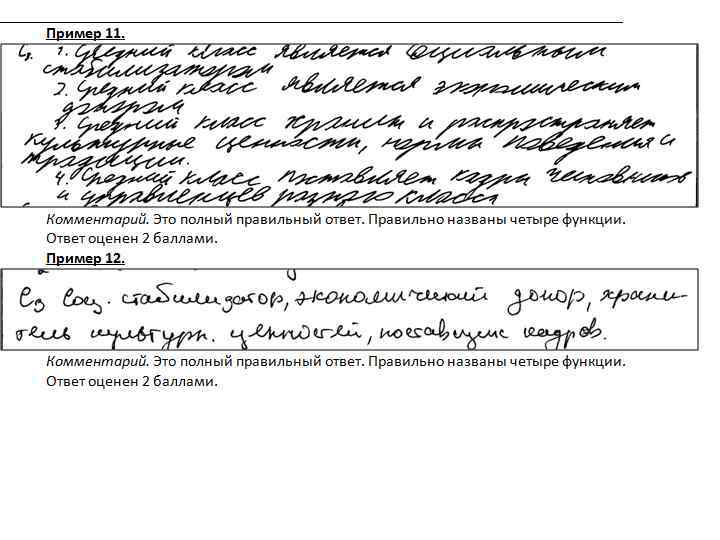 Пример 11.
С2. 1. Средний класс является социальным
стабилизатором
2. Средний класс является экономическим
донором
3. Средний класс хранит и распространяет
культурные ценности, нормы поведения и
традиции.
4. Средний класс поставляет кадры чиновников
и управленцев разного класса
Комментарий. Это полный правильный ответ. Правильно названы четыре функции.
Ответ оценен 2 баллами.
Пример 12.
С2 Соц. стабилизатор, экономический донор, храни-
тель культурн. ценностей, поставщик кадров.
Комментарий. Это полный правильный ответ. Правильно названы четыре функции.
Ответ оценен 2 баллами.